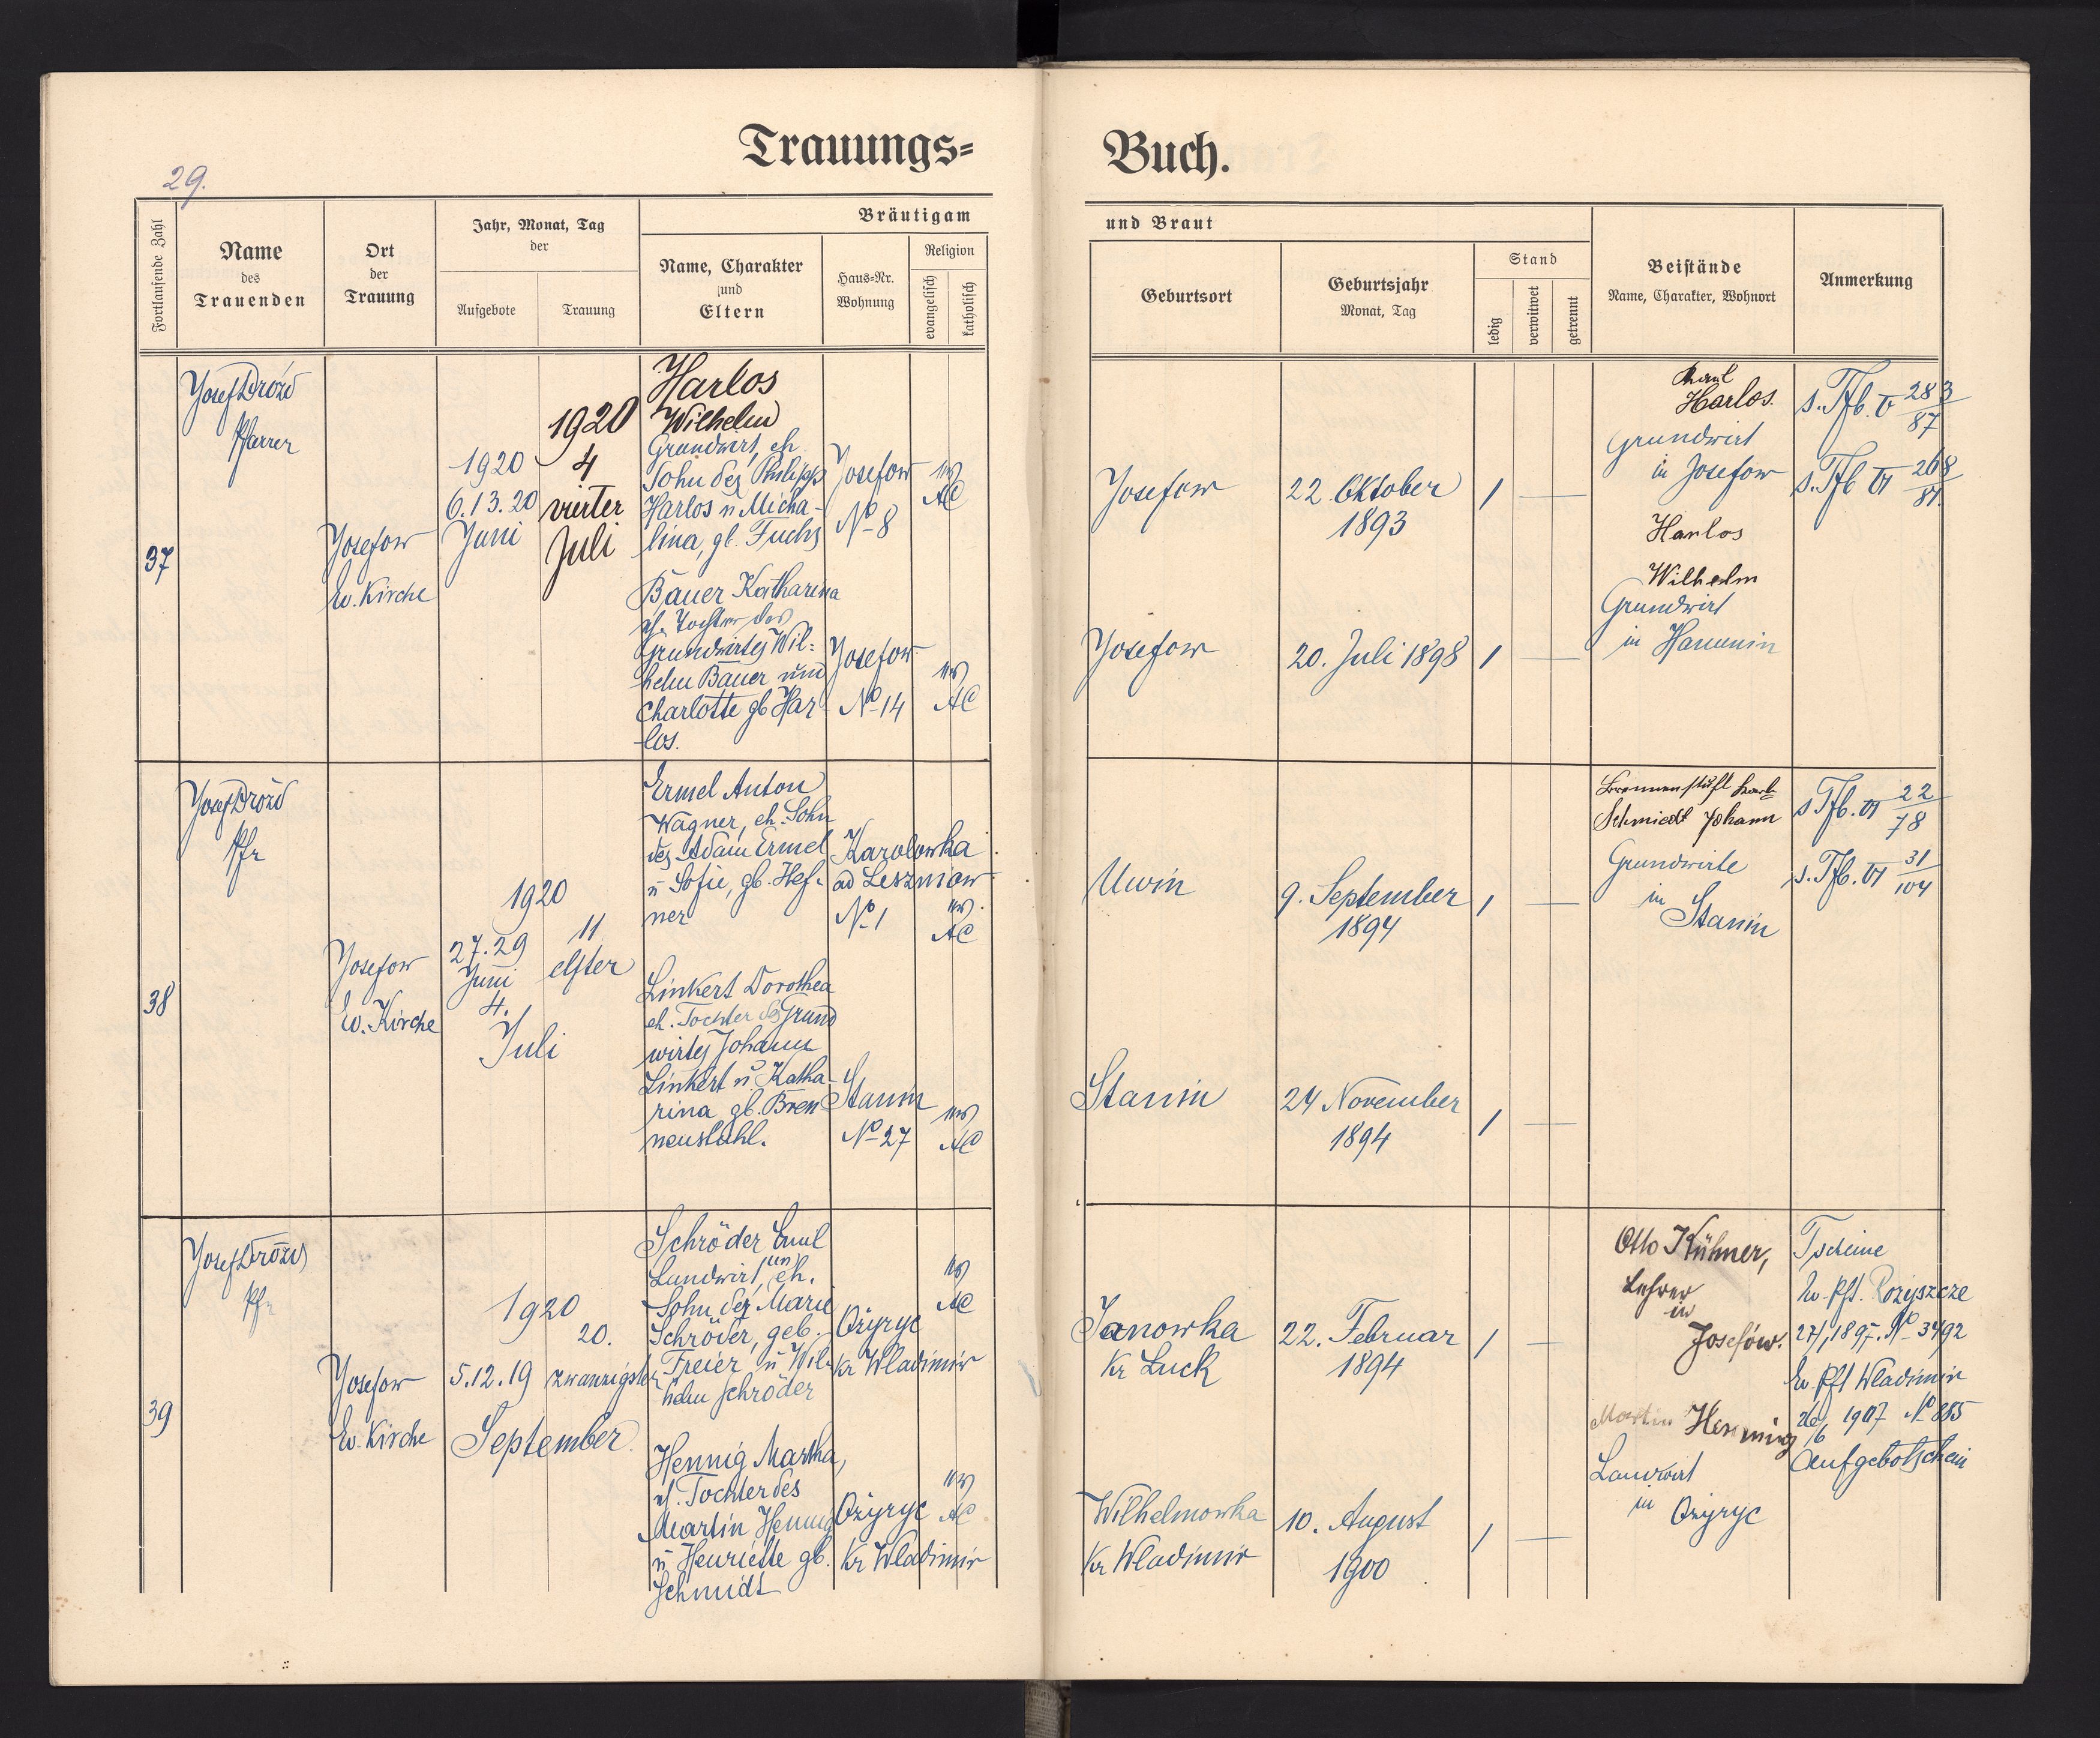 Trauungs=
Buch.
29.
Fortlaufende Zahl
Name
des
Trauenden
Ort
der
Trauung
Jahr, Monat, Tag
der
Aufgebote
Trauung
Bräutigam
Name, Charakter
und
Eltern
Haus=Nr.
Wohnung
Religion
evangelisch
katholisch
und Braut
Geburtsort
Geburtsjahr
Monat, Tag
Stand
ledig
verwitwet
getrennt
Beistände
Name, Charakter, Wohnort
Anmerkung
37
Josef Drozd
Pfarrer
Josefow
Ev. Kirche
1920
6.13.20
Juni
1920
4
vierter
Juli
Harlos
Wilhelm
Grundwirt, eh
Sohn des Philipp
Harlos u Micha-
lina, gb. Fuchs
Josefow
No 8
AC
Bauer Katharina
eh. Tochter des
Grundwirtes Wil=
helm Bauer und
Charlotte gb Har-
los.
Josefow
No 14
AC
Josefow
22. Oktober
1893
1
Josefow
20. Juli 1898
1
Harlos.
Grundwirt
in Josefow
Harlos
Wilhelm
Grundwirt
in Hanunin
s. Tfb. V 283/87
s. Tfb VI 268/81.
38
Josef Drozd
Pfr
Josefow
Ev. Kirche
1920
27.29
Juni
4.
Juli
11
elfter
Ermel Anton
Wagner, eh. Sohn
des Adam Ermel
u Sofie, gb. Hef-
ner
Karolowka
ad Leszniow
No 1
AC
Linkert Dorothea
eh. Tochter des Grund
wirtes Johann
Linkert u Katha-
rina gb. Bren
nenstuhl.
Stanin
No 27
AC
Unin
9. September
1894
1
Stanin
24 November
1894
1
Brennenstuhl
Schmiedt Johann
Grundwirte
in
Stanin
s Tfb. VI 22/78
s. Tfb. VI 31/104
39
Josef Drozd
Pfr
Josefow
Ev. Kirche
1920
5.12.19
20.
zwanzigster
September.
Schröder Emil
Landwirt, un eh.
Sohn der Marie
Schröder, geb.
Freier u Wil-
helm Schröder
Oziryc
Kr Wladimir
AC
Hennig Martha,
eh. Tochter des
Martin Hennig
u Henriette gb.
Schmidt
Oziryc
Kr Wladimir
AC
Janowka
Kr Luck
22. Februar
1894
1
Wilhelmowka
Kr Wladimir
10. August
1900
1
Otto Kühner,
Lehrer
in
Josefów.
Martin Henning
Landwirt
in
Oziryc
Tscheine
Ev. Pft. Rozyszcze
27/1 1897. No 3492
Ev. Pft Wladimir
26/6 1907 No 885
Aufgebotschein